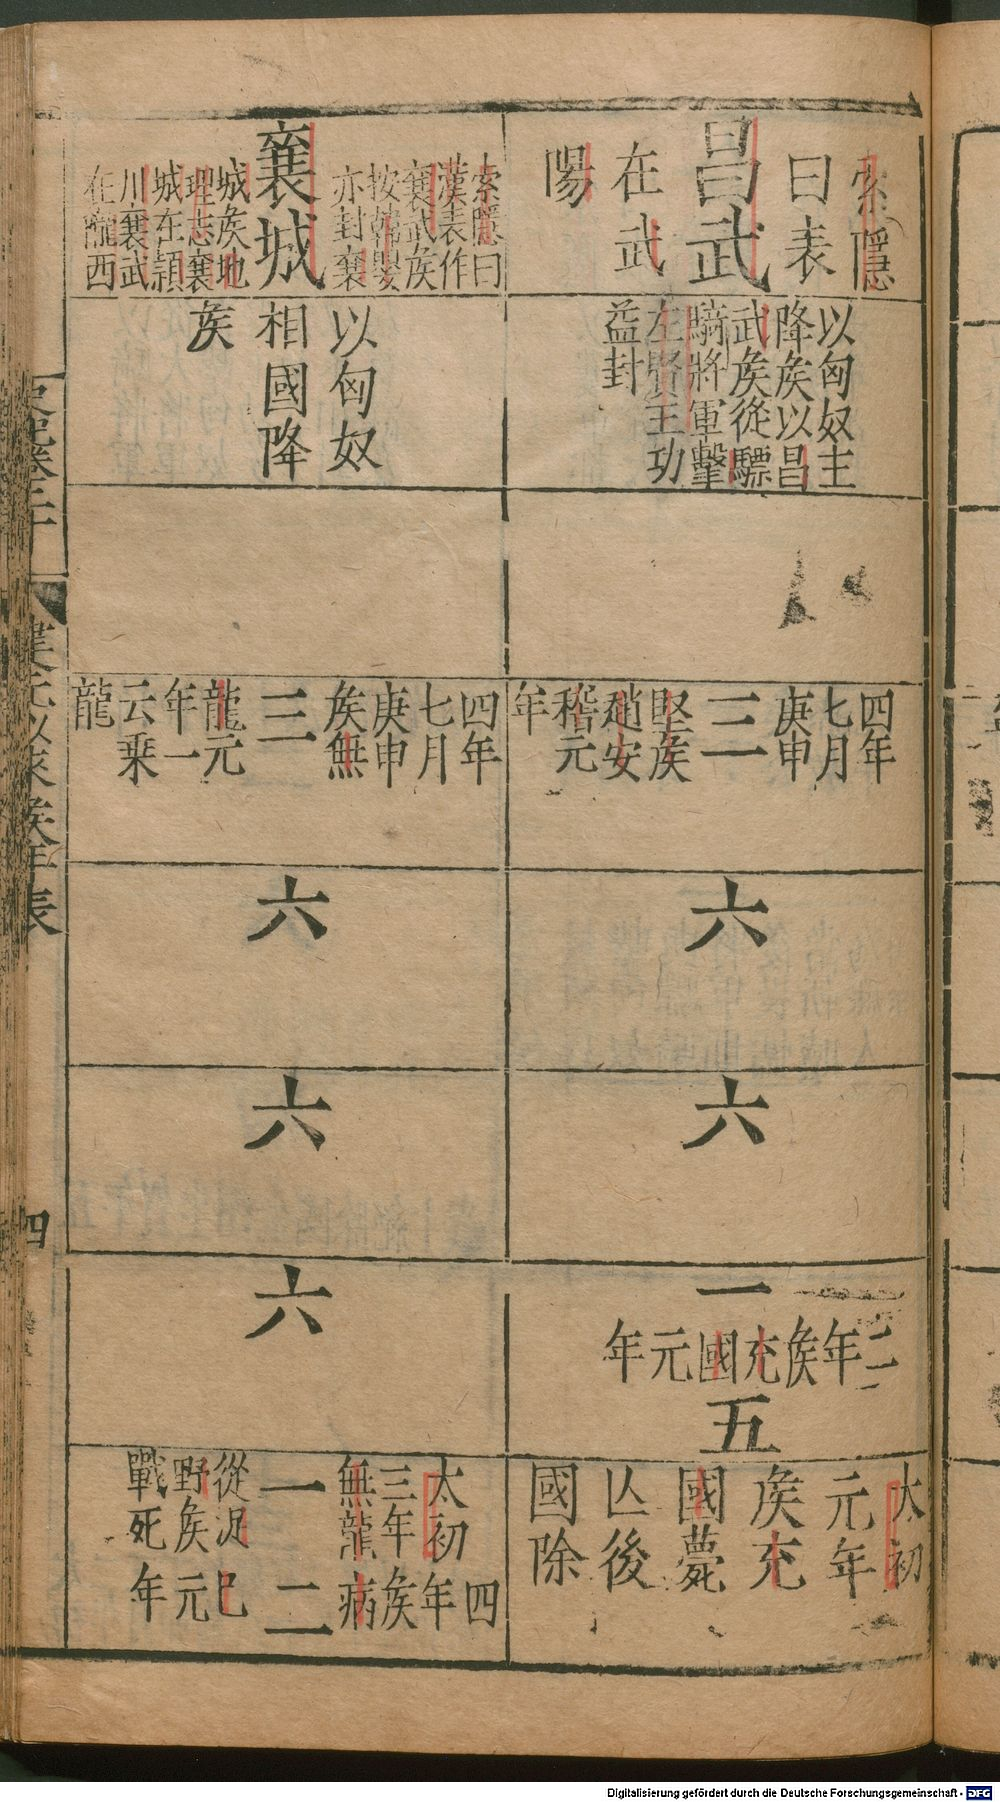 索隱
曰表
昌武
在武
陽
以匈奴主
降矦以昌
武矦從驃
騎將軍擊
左賢王功
益封
四年
七月
庚申
三
堅矦
趙安
稽元
年
六
六
一
二年矦充國元年
五
太初
元年
矦充
國薨
亾後
國除
索隱曰
漢表作
襄武矦
按韓嬰
亦封襄
襄城
城矦地
理志襄
城在潁
川襄武
在隴西
以匈奴
相國降
矦
四年
七月
庚申
矦無
三
龍元
年一
云乘
龍
六
六
六
太初
三年
無龍
一
從浞
野矦
戰死
四
年
矦
病
二
已
元
年
漢元以來矦年表
四
Digitalisierung gefördert durch die Deutsche Forschungsgemeinschaft - DFG